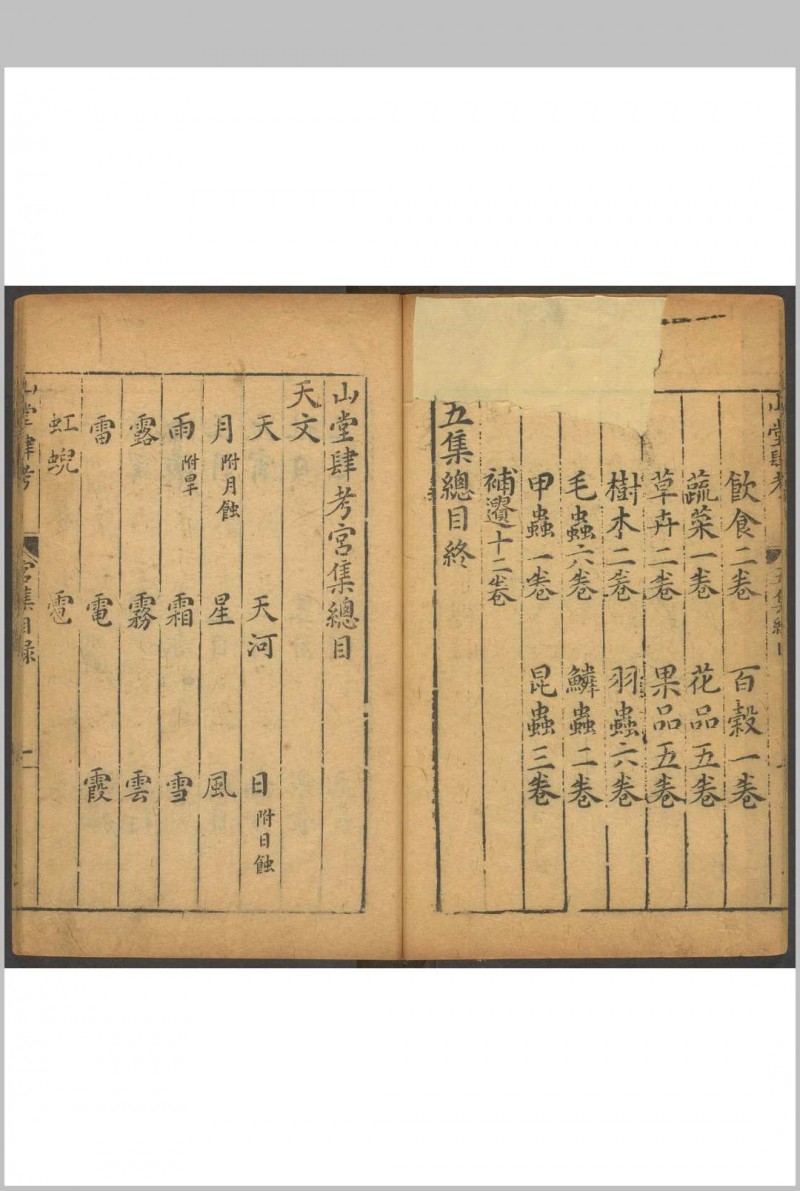 飲食二卷 百穀一卷
蔬菜一卷 花品五卷
草卉二卷 果品五卷
樹木二卷 羽蟲六卷
毛蟲六卷 鱗蟲二卷
甲蟲一卷 昆蟲三卷
補遺十二卷
五集總目終
山堂肆考宮集總目
天文
天 天河 日 附日蝕
月 附月蝕 星 風
雨 附旱 霜 雪
露 霧 雲
雷 電 霞
虹蜺 雹
山堂肆考 宮集目録 一